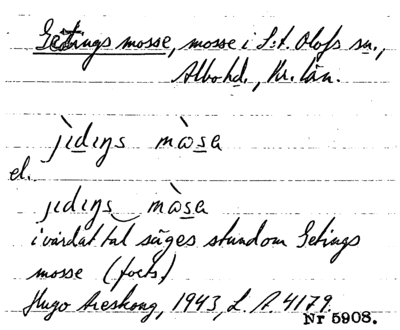 Getings mosse, mosse i S:t. Olofs sn.,
Albo hd., Kr. län.
jìdıŋs mòsa
el.
jıdıŋs mòsa
i vårdat tal säges stundom Getings
mosse (forts.)
Hugo Areskoug, 1943, L. P. 4179.
Nr 5908.